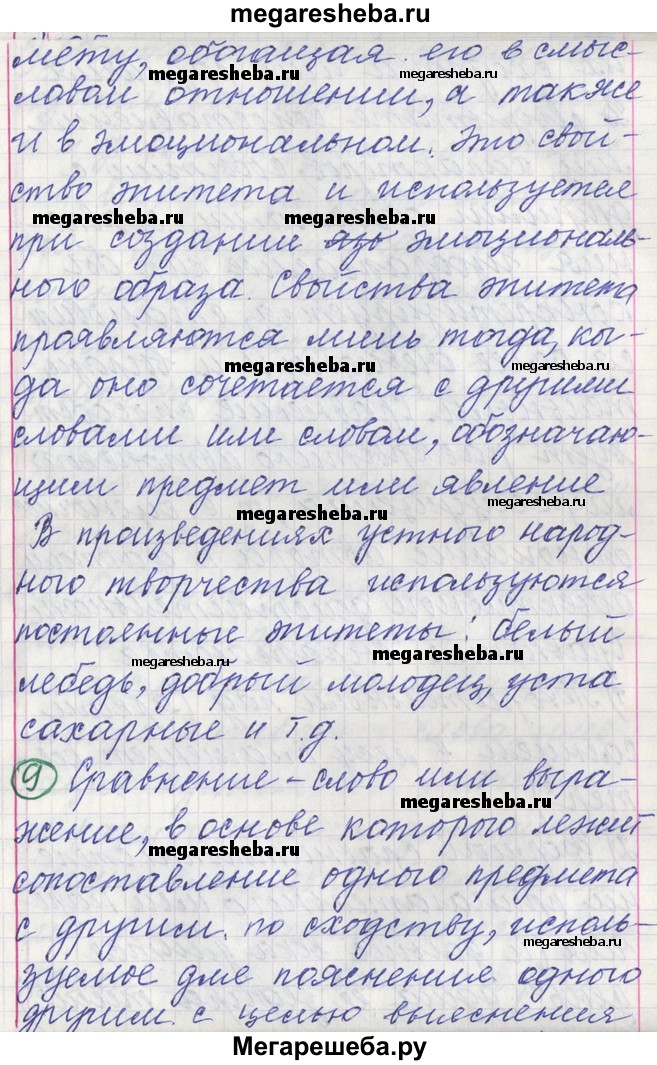 megaresheba.ru
мету, обогащая его в смыс-
megaresheba.ru megaresheba.ru
ловом отношении, а также
и в эмоциональном. Это свой-
ство эпитета и используется
megaresheba.ru megaresheba.ru
при создании эмоциональ-
ного образа. Свойства эпитета
проявляются лишь тогда, ко-
megaresheba.ru megaresheba.ru
да оно сочетается с другими
словами или словом, обозначаю-
щим предмет или явление
megaresheba.ru megaresheba.ru
В произведениях устного народ-
ного творчества используются
постоянные эпитеты: белый
megaresheba.ru megaresheba.ru
лебедь, добрый молодец, уста
сахарные и т.д.
9 Сравнение – слово или выра-
megaresheba.ru
жение, в основе которого лежит
megaresheba.ru
сопоставление одного предмета
с другим по сходству, исполь-
megaresheba.ru
зуемое для пояснения одного
другим с целью выяснения
Мегарешеба.ру